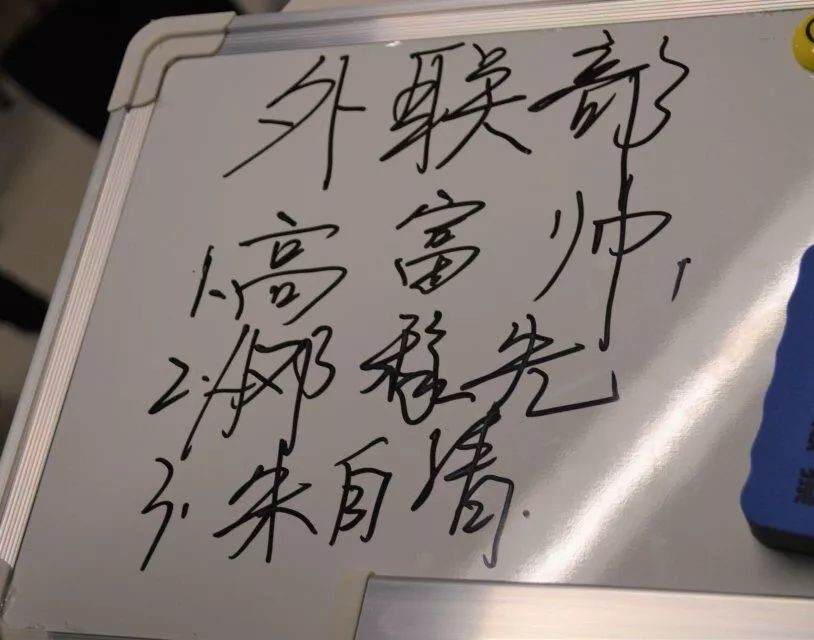 外联部
1.高富帅
2.郑稳先
3.朱自清